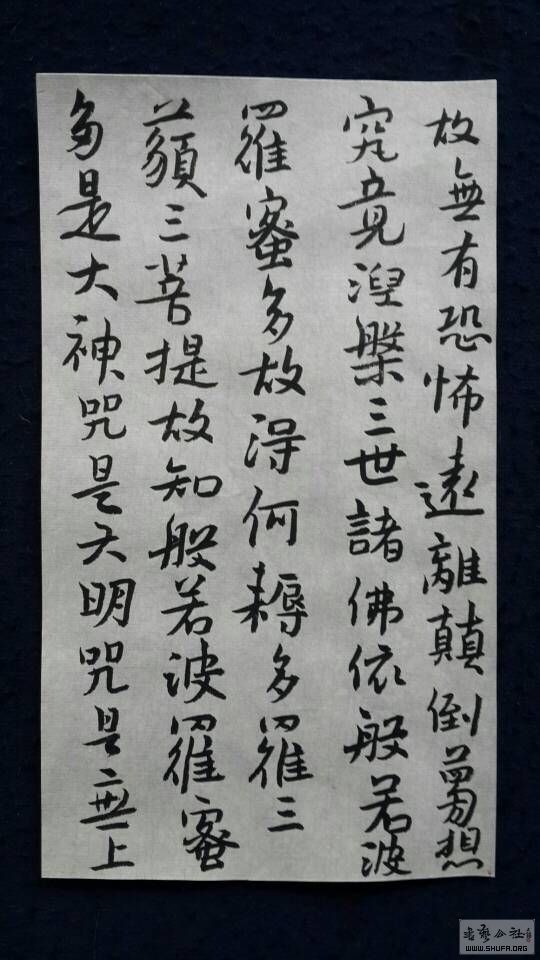 故無有恐怖遠離顛倒夢想
究竟涅槃三世諸佛依般若波
羅蜜多故得何耨多羅三
藐三菩提故知般若波羅蜜
多是大神咒是大明咒是無上
书艺公社
WWW.SHUFA.ORG